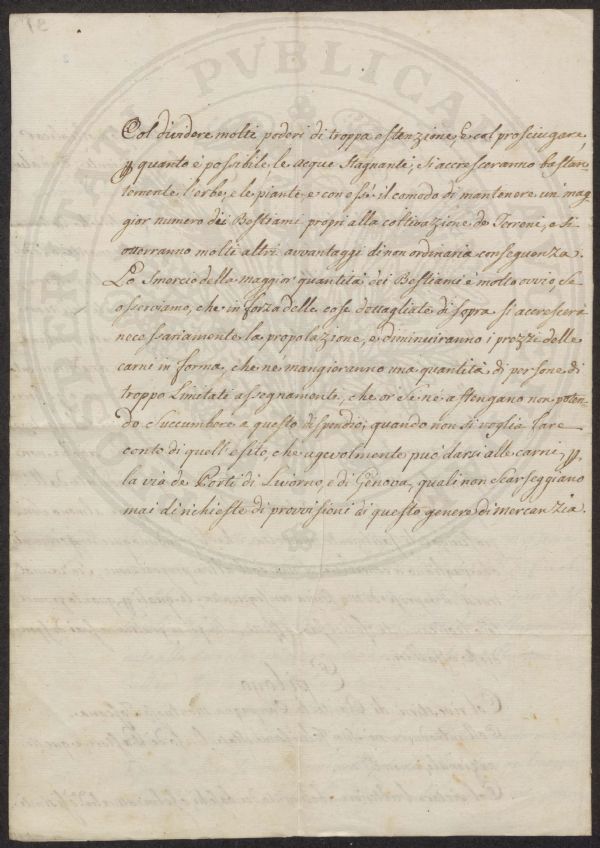 Col dividere molti poderi di troppa estenzione, e col prosciugare,
quanto è possibile, le acque stagnanti, si accresceranno bastan-
temente l'erbe, e le piante e con esse il comodo di mantenere un mag-
gior numero dei Bestiami proprj alla coltivazione de Terreni, e si
otterranno molti altri avvantaggi di non ordinaria conseguenza.
Lo Smercio della maggior quantità dei Bestiami è molto ovvio, se
osserviamo, che in forza delle cose dettagliate di sopra si accrescerà
necessariamente la propolazione, e diminuiranno i prezzi delle
carni in forma, che ne mangieranno una quantità di persone di
troppo Limitati assegnamenti, che or se ne astengano non poten-
do Succumbere a questo dispendio; quando non si voglia fare
conto di quell'esito, che agevolmente può darsi alle carni
la via de Porti di Livorno, e di Genova, quali non scarseggiano
mai di richieste di provvisioni di questo genere di mercanzia.
PVBLICAE